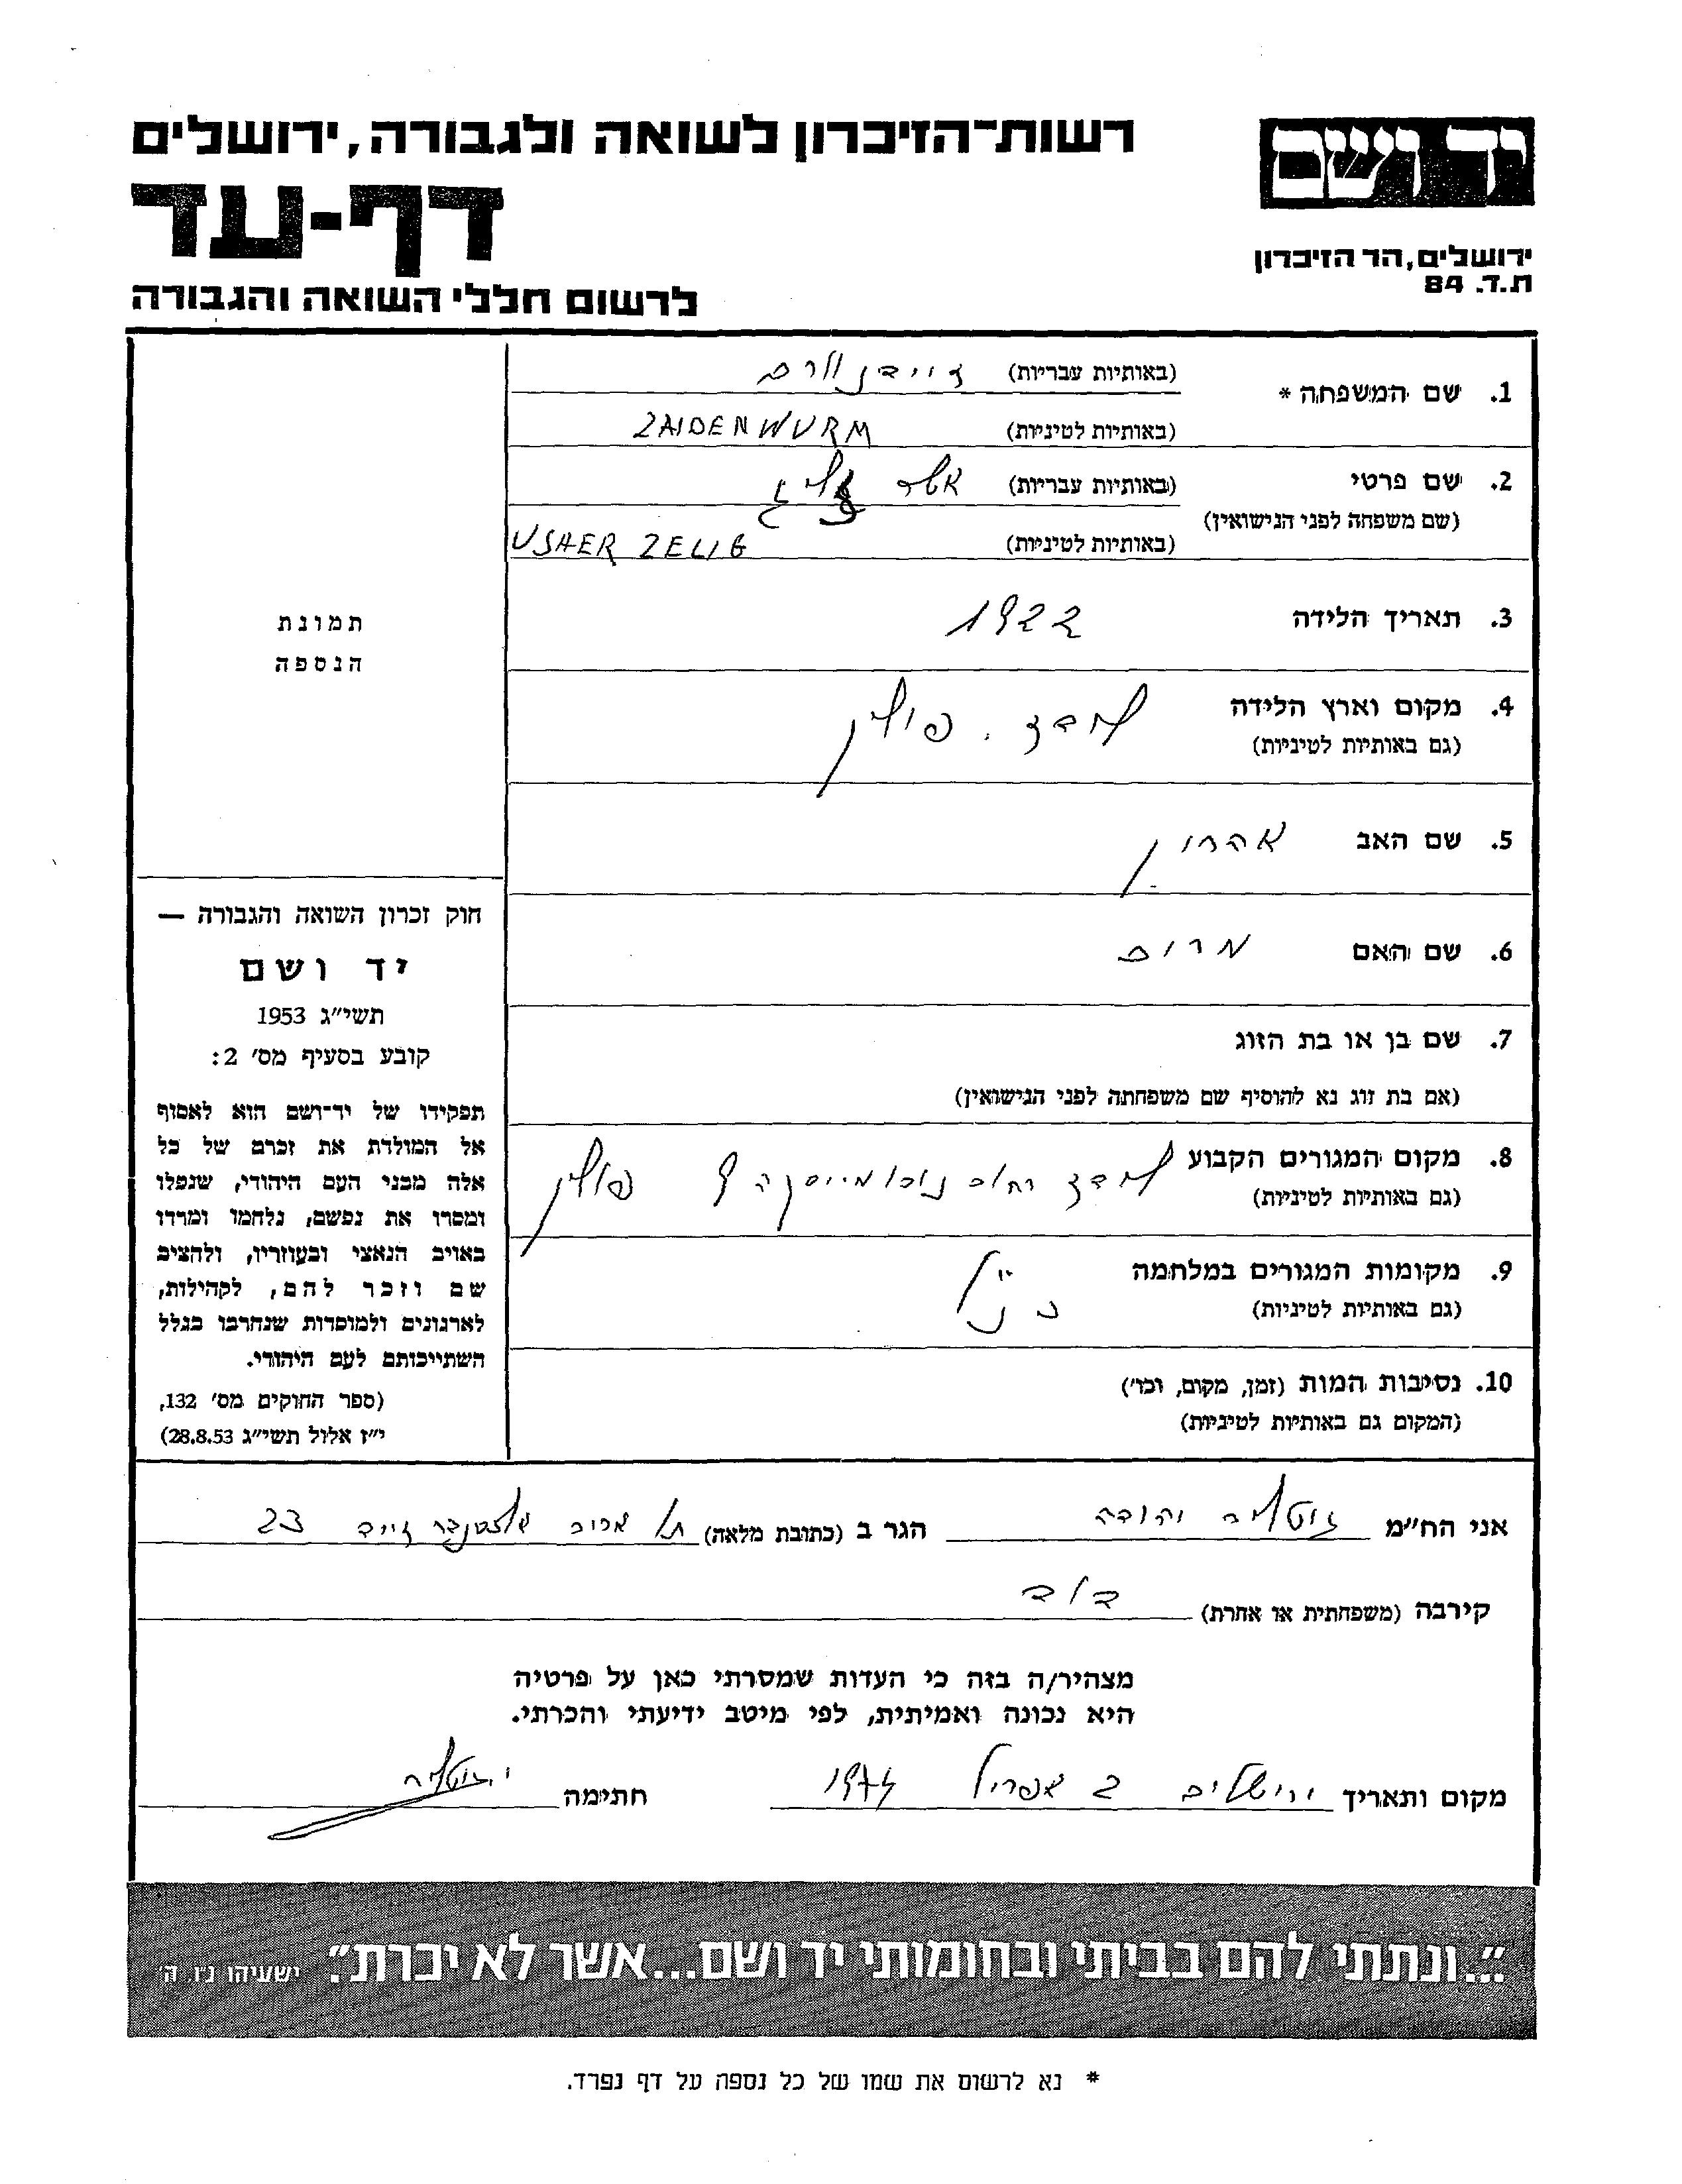 רשות־הזיכרון לשואה ולגבורה, ירושלים
דף-עד
לרשום חללי השואה והגבורה
יד ושם
ירושלים, הר הזיכרון
ת.ד. 84
1. שם המשפחה * (באותיות עבריות) זיידנוורם
(באותיות לטיניות) ZAIDENWURM
2. שם פרטי (באותיות עבריות) אשר זליג
(שם משפחה לפני הנישואין)
(באותיות לטיניות) USHER ZELIG
3. תאריך הלידה 1922
4. מקום וארץ הלידה לודז. פולין
(גם באותיות לטיניות)
5. שם האב אהרון
6. שם האם מרים
7. שם בן או בת הזוג
(אם בת זוג נא להוסיף שם משפחתה לפני הנישואין)
8. מקום המגורים הקבוע לודז רחוב 9 פולין
(גם באותיות לטיניות)
9. מקומות המגורים במלחמה כנ"ל
(גם באותיות לטיניות)
10. נסיבות המות (זמן, מקום, וכו')
(המקום גם באותיות לטיניות)
תמונת
הנספה
חוק זכרון השואה והגבורה —
יד ושם
תשי״ג 1953
קובע בסעיף מס׳ 2:
תפקידו של יד־ושם הוא לאסוף
אל המולדת את זכרם של כל
אלה מבני העם היהודי, שנפלו
ומסרו את נפשם, נלחמו ומרדו
באויב הנאצי ובעוזריו, ולהציב
שם וזכר להם, לקהילות,
לארגונים ולמוסדות שנחרבו בגלל
השתייכותם לעם היהודי.
(ספר החוקים מס׳ 132,
י״ז אלול תשי״ג 28.8.53)
אני הח״מ יהודה הגר ב (כתובת מלאה) תל אביב אלכסנדר זייד 23
קירבה (משפחתית או אחרת) דוד
מצהיר/ה בזה כי העדות שמסרתי כאן על פרטיה
היא נכונה ואמיתית, לפי מיטב ידיעתי והכרתי.
מקום ותאריך ירושלים 2 אפריל 1974 חתימה
״...ונתתי להם בביתי ובחומותי יד ושם...אשר לא יכרת״. ישעיהו נ״ו, ה׳
* נא לרשום את שמו של כל נספה על דף נפרד.